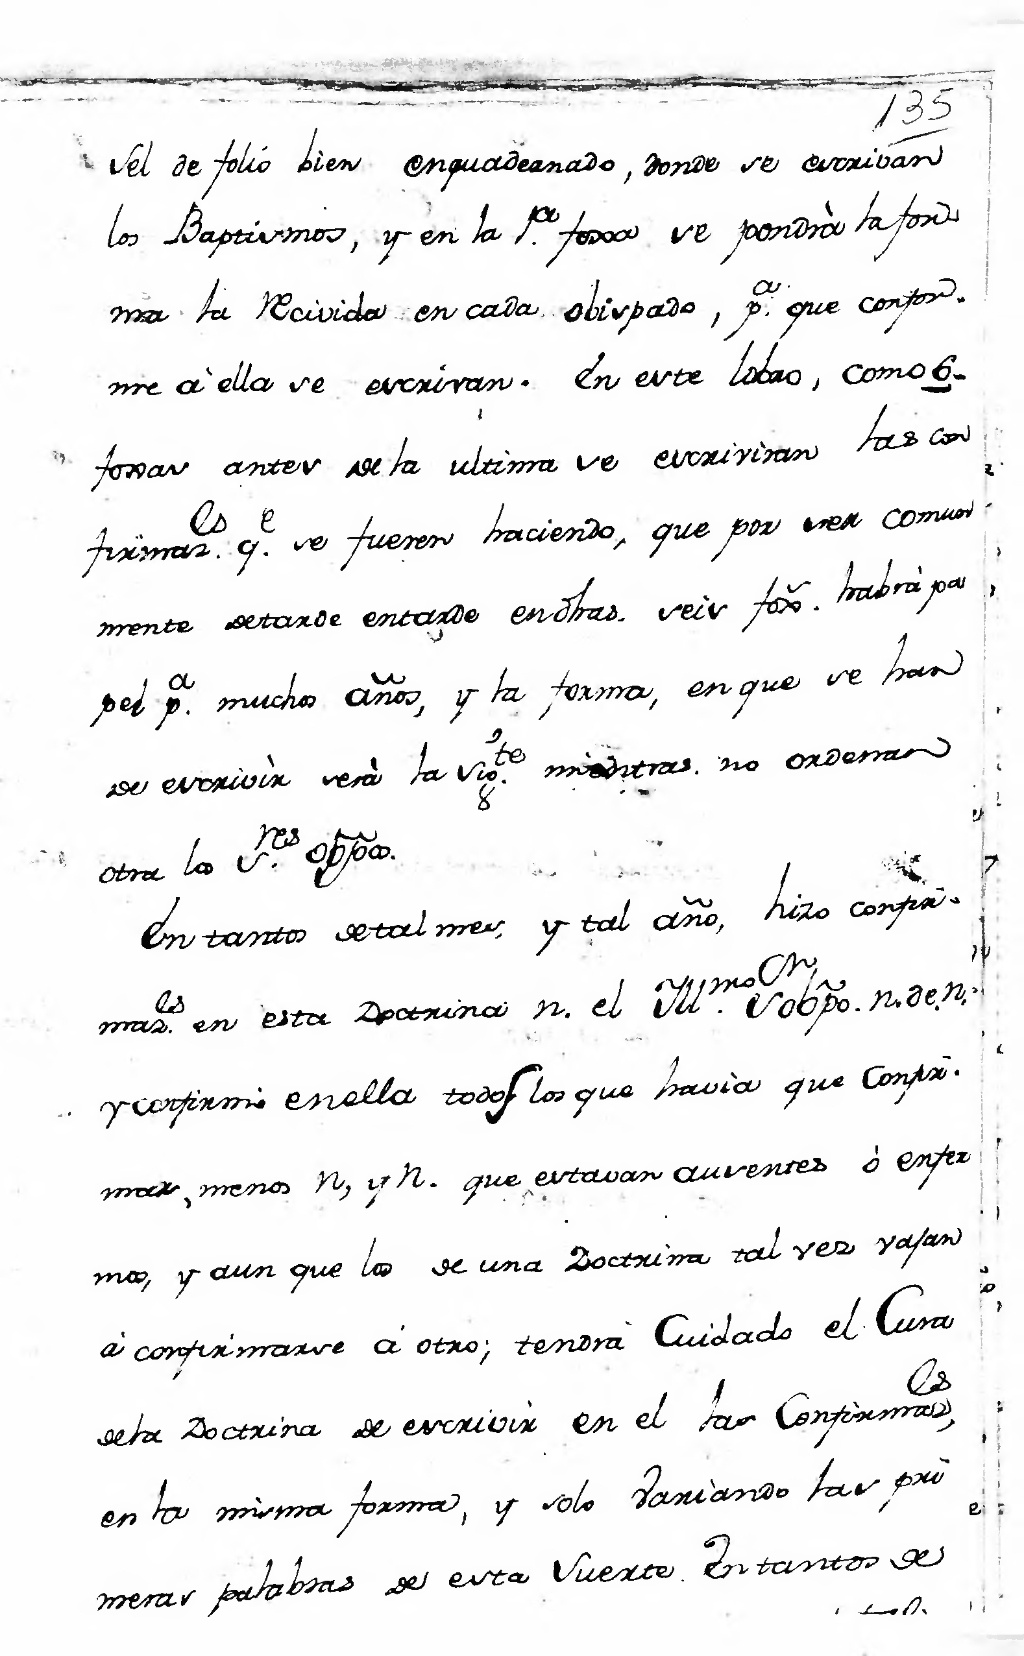 135
pel de folio bien enquadernado, donde se escrivan
los Baptismos, y en la 1.ª foxa se pondrà la for
ma la recivida en cada obispado, p.ª que confor-
me à ella se escrivan. En este libro, como 6-
foxas antes de la ultima se escriviran las con
firmaz.es q.e se fueren haciendo, que por ser comun
mente de tarde en tarde en dhas. seis fox.s habrà pa
pel p.ª muchos años, y la forma, en que se han
de escrivir serà la sig.te mientras no ordenan
otra los S.res Obpos.
En tantos de tal mes, y tal año, hizo confir-
maz.es en esta Doctrina n. el Ill.mo S.or Obpo. n. de n.
y confirmò en ella todos los que havia que confir-
mar, menos N, y N. que estavan ausentes ò enfer
mos, y aun que los de una Doctrina tal vez vajan
à confirmarse à otro; tendrà Cuidado el Cura
de la Doctrina de escrivir en el las Confirmaz.es,
en la misma forma, y solo variando las pri
meras palabras de esta suerte. En tantos de